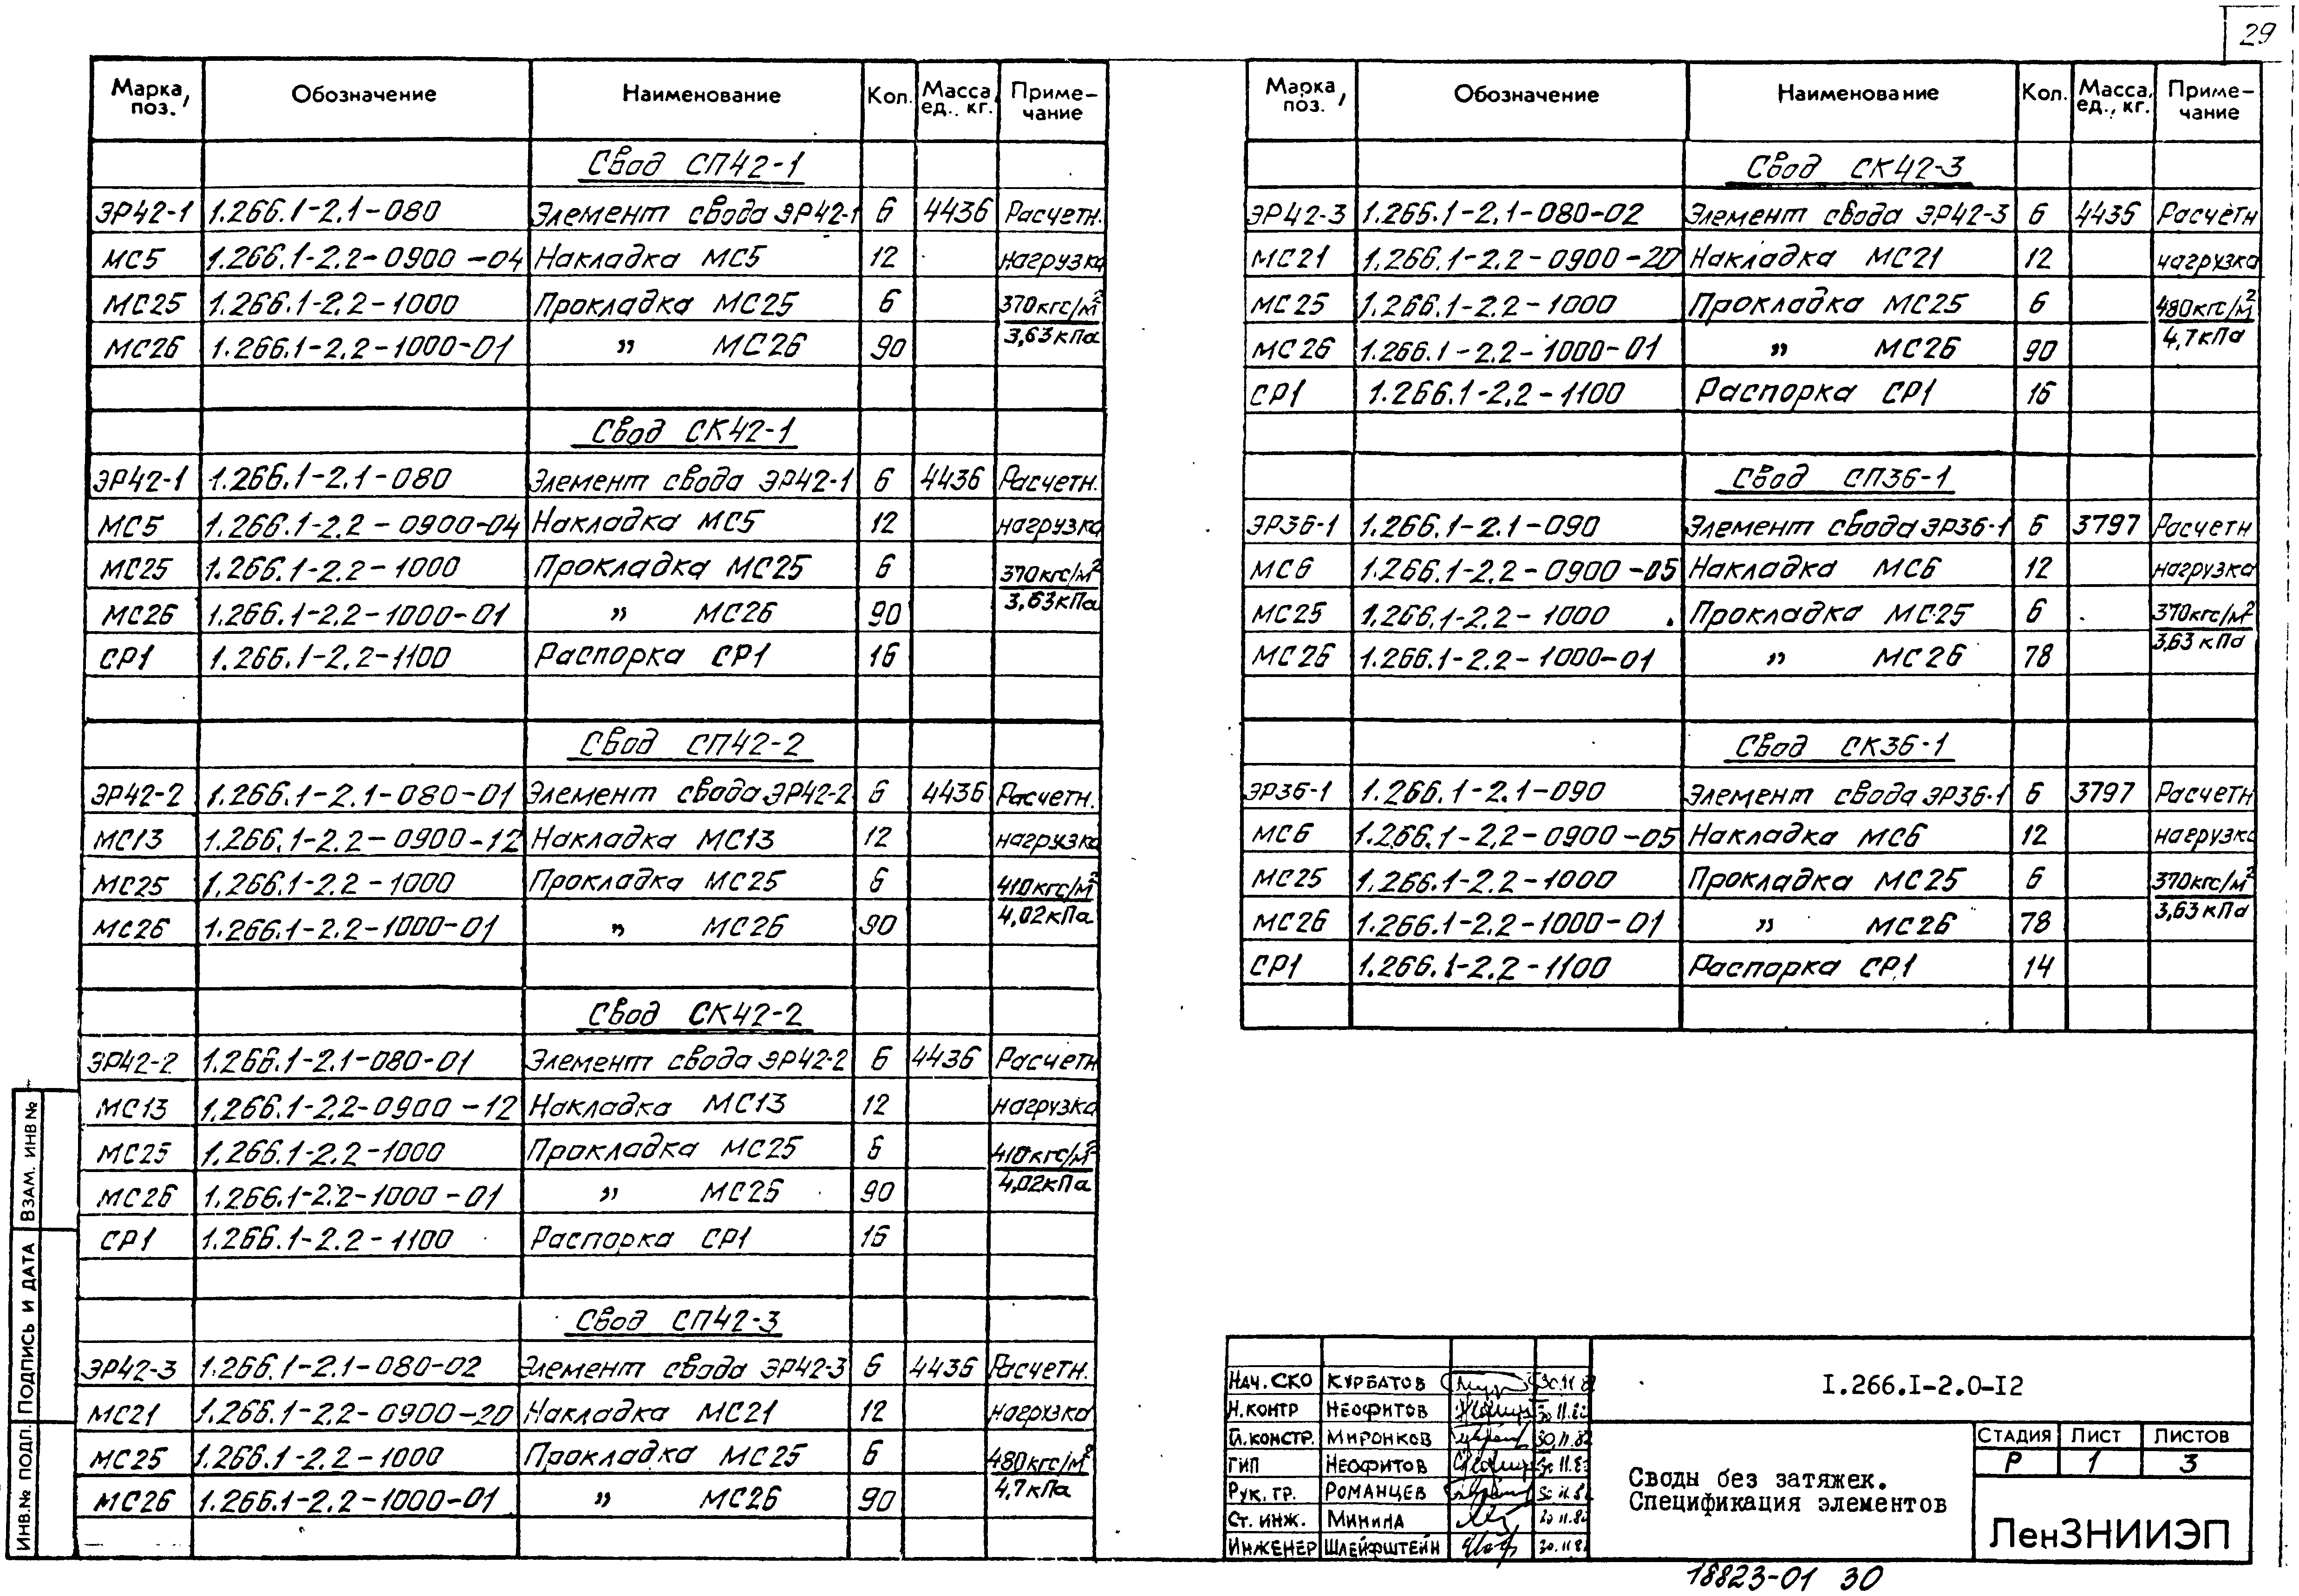 29
Марка, поз. Обозначение Наименование Кол. Масса ед., кг. Приме-чание
Свод СП42-1
ЭР42-1 1.266.1-2.1-080 Элемент свода ЭР42-1 6 4436 Расчетн.
МС5 1.266.1-2.2-0900-04 Накладка МС5 12 нагрузка
МС25 1.266.1-2.2-1000 Прокладка МС25 6 370кгс/м²
МС26 1.266.1-2.2-1000-01 " МС26 90 3,63кПа
Свод СК42-1
ЭР42-1 1.266.1-2.1-080 Элемент свода ЭР42-1 6 4436 Расчетн.
МС5 1.266.1-2.2-0900-04 Накладка МС5 12 нагрузка
МС25 1.266.1-2.2-1000 Прокладка МС25 6 370кгс/м²
МС26 1.266.1-2.2-1000-01 " МС26 90 3,63кПа
СР1 1.266.1-2.2-1100 Распорка СР1 16
Свод СП42-2
ЭР42-2 1.266.1-2.1-080-01 Элемент свода ЭР42-2 6 4436 Расчетн.
МС13 1.266.1-2.2-0900-12 Накладка МС13 12 нагрузка
МС25 1.266.1-2.2-1000 Прокладка МС25 6 410кгс/м²
МС26 1.266.1-2.2-1000-01 " МС26 90 4,02кПа
Свод СК42-2
ЭР42-2 1.266.1-2.1-080-01 Элемент свода ЭР42-2 6 4436 Расчетн
МС13 1.266.1-2.2-0900-12 Накладка МС13 12 нагрузка
МС25 1.266.1-2.2-1000 Прокладка МС25 6 410кгс/м²
МС26 1.266.1-2.2-1000-01 " МС26 90 4,02кПа
СР1 1.266.1-2.2-1100 Распорка СР1 16
Свод СП42-3
ЭР42-3 1.266.1-2.1-080-02 Элемент свода ЭР42-3 6 4436 Расчетн.
МС21 1.266.1-2.2-0900-20 Накладка МС21 12 нагрузка
МС25 1.266.1-2.2-1000 Прокладка МС25 6 480кгс/м²
МС26 1.266.1-2.2-1000-01 " МС26 90 4,7кПа
Марка, поз. Обозначение Наименование Кол. Масса, ед., кг. Приме-чание
Свод СК42-3
ЭР42-3 1.266.1-2.1-080-02 Элемент свода ЭР42-3 6 4436 Расчетн
МС21 1.266.1-2.2-0900-20 Накладка МС21 12 нагрузка
МС25 1.266.1-2.2-1000 Прокладка МС25 6 480кгс/м²
МС26 1.266.1-2.2-1000-01 " МС26 90 4,7кПа
СР1 1.266.1-2.2-1100 Распорка СР1 16
Свод СП36-1
ЭР36-1 1.266.1-2.1-090 Элемент свода ЭР36-1 6 3797 Расчетн
МС6 1.266.1-2.2-0900-05 Накладка МС6 12 нагрузка
МС25 1.266.1-2.2-1000 Прокладка МС25 6 370кгс/м²
МС26 1.266.1-2.2-1000-01 " МС26 78 3,63кПа
Свод СК36-1
ЭР36-1 1.266.1-2.1-090 Элемент свода ЭР36-1 6 3797 Расчетн
МС6 1.266.1-2.2-0900-05 Накладка МС6 12 нагрузка
МС25 1.266.1-2.2-1000 Прокладка МС25 6 370кгс/м²
МС26 1.266.1-2.2-1000-01 " МС26 78 3,63кПа
СР1 1.266.1-2.2-1100 Распорка СР1 14
ИНВ.№ ПОДЛ. ПОДПИСЬ И ДАТА ВЗАМ. ИНВ №
Нач. СКО Курбатов 30.11.82
Н.контр Неофитов 30.11.82
Гл.констр. Миронков 30.11.82
ГИП Неофитов 30.11.82
Рук. гр. Романцев 30.11.82
Ст. инж. Минина 30.11.82
Инженер Шлейфштейн 30.11.82
I.266.I-2.0-I2
Своды без затяжек.
Спецификация элементов
СТАДИЯ ЛИСТ ЛИСТОВ
Р 1 3
ЛенЗНИИЭП
18823-01 30